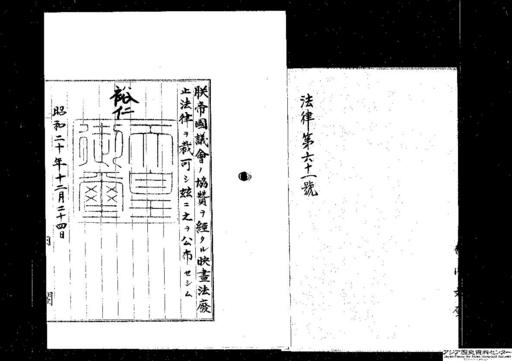 朕帝國議會ノ協贊ヲ經タル映畫法廢
止法律ヲ裁可シ玆ニ之ヲ公布セシム
裕仁
天皇
御璽
昭和二十年十二月二十四日
法律第六十一號
アジア歴史資料センター